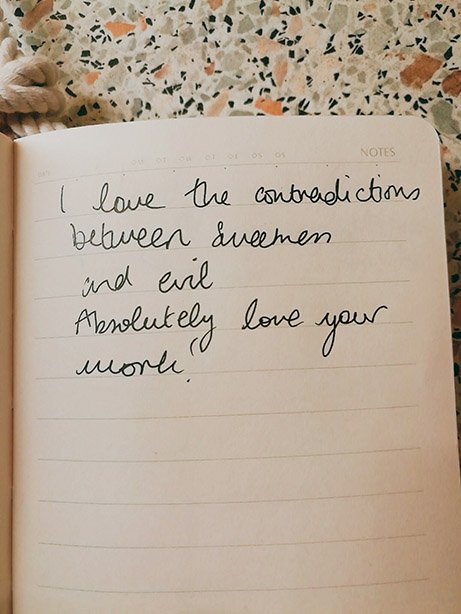 NOTES
I love the contradictions
between sweetness
and evil
Absolutely love your
work!